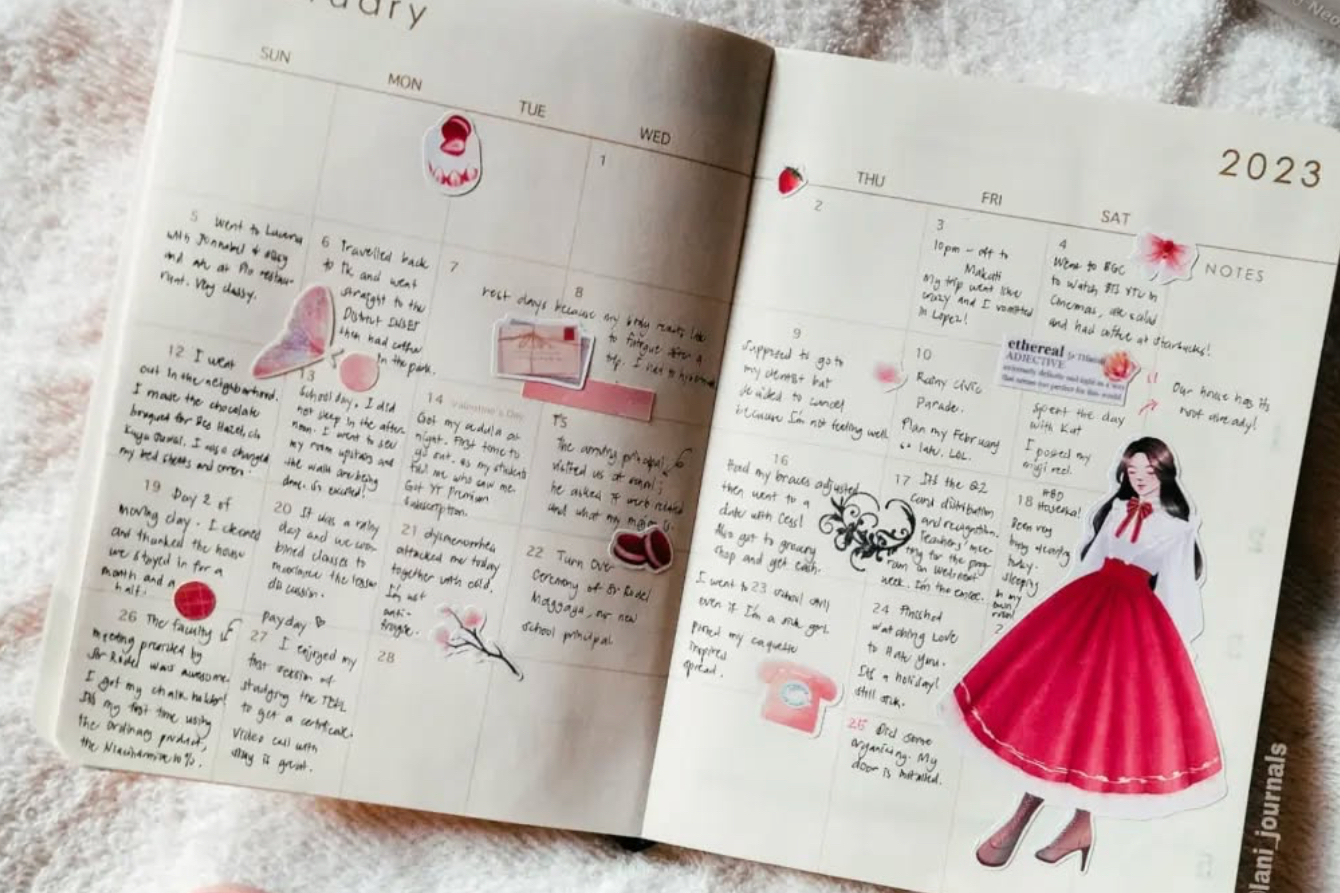 uary
2023
SUN
MON
TUE
WED
THU
FRI
SAT
NOTES
1
2
3
10pm - off to
Makati
My trip went
crazy and I vomitted
in Lopez!
4
Went to BGC
to watch BTS YTC in
Cinemas, ate salad
and had coffee at Starbucks!
5 Went to
with &
and ate at restau-
rant. Very classy.
6 Travelled back
to and went
straight to the
District
then had coffee
in the park.
7
8
rest days because my body reacts
to fatigue after a
trip. I
9
Supposed to go to
my dentist but
decided to cancel
because I'm not feeling well
10
Rainy civic
Parade.
Plan my February
so late. LOL.
ethereal
ADJECTIVE
extremely delicate and light in a way
that seems too perfect for this world
11
spent the day
with Kat
I posted my
reel.
Our house has its
roof already!
12 I went
out in the neighborhood.
I made the chocolate
bouquet for
I was changed
my bed sheets and
13
School day. I did
not sleep in the after-
noon. I went to see
my room upstairs and
the walls are being
done. So excited!
14 Valentine's Day
Got my cedula at
night. First time to
go out, as my students
told me who saw me.
Got YT Premium
Subscription.
15
The principal
visited us at school;
he asked if work related
and what my major is.
16
Had my braces adjusted
then went to a
date with Cess!
Also got to grocery
shop and get cash.
17 It's the Q2
card distribution
and recognition.
Teachers'
for the pro-
gram is Wednesday next
week. I'm the emcee.
18 HBD
Hoseok!
Been very
busy
sleeping
in my
own
room!
19 Day 2 of
moving day. I cleaned
and thanked the house
we stayed in for a
month and a
half.
20 It was a rainy
day and we com-
bined classes to
maximize the lesson
discussion.
21 dysmenorrhea
attacked me today
together with cold.
I'm not
anti-
fragile.
22 Turn Over
Ceremony of Sir Rodel
Maggaya, our new
school principal.
I went to 23 school still
even if I'm a sick girl.
Posted my coquette
inspired
spread.
24 Finished
watching Love
to Hate You.
It's a holiday!
Still sick.
25 Did some
organizing. My
door is installed.
26 The faculty
meeting presided by
Sir Rodel was awesome.
I got my chalk holder!
It's my first time using
the ordinary product,
the Niacinamide 10%.
Payday
27 I enjoyed my
first session of
studying the
to get a certificate.
Video call with
is great.
28
lani_journals